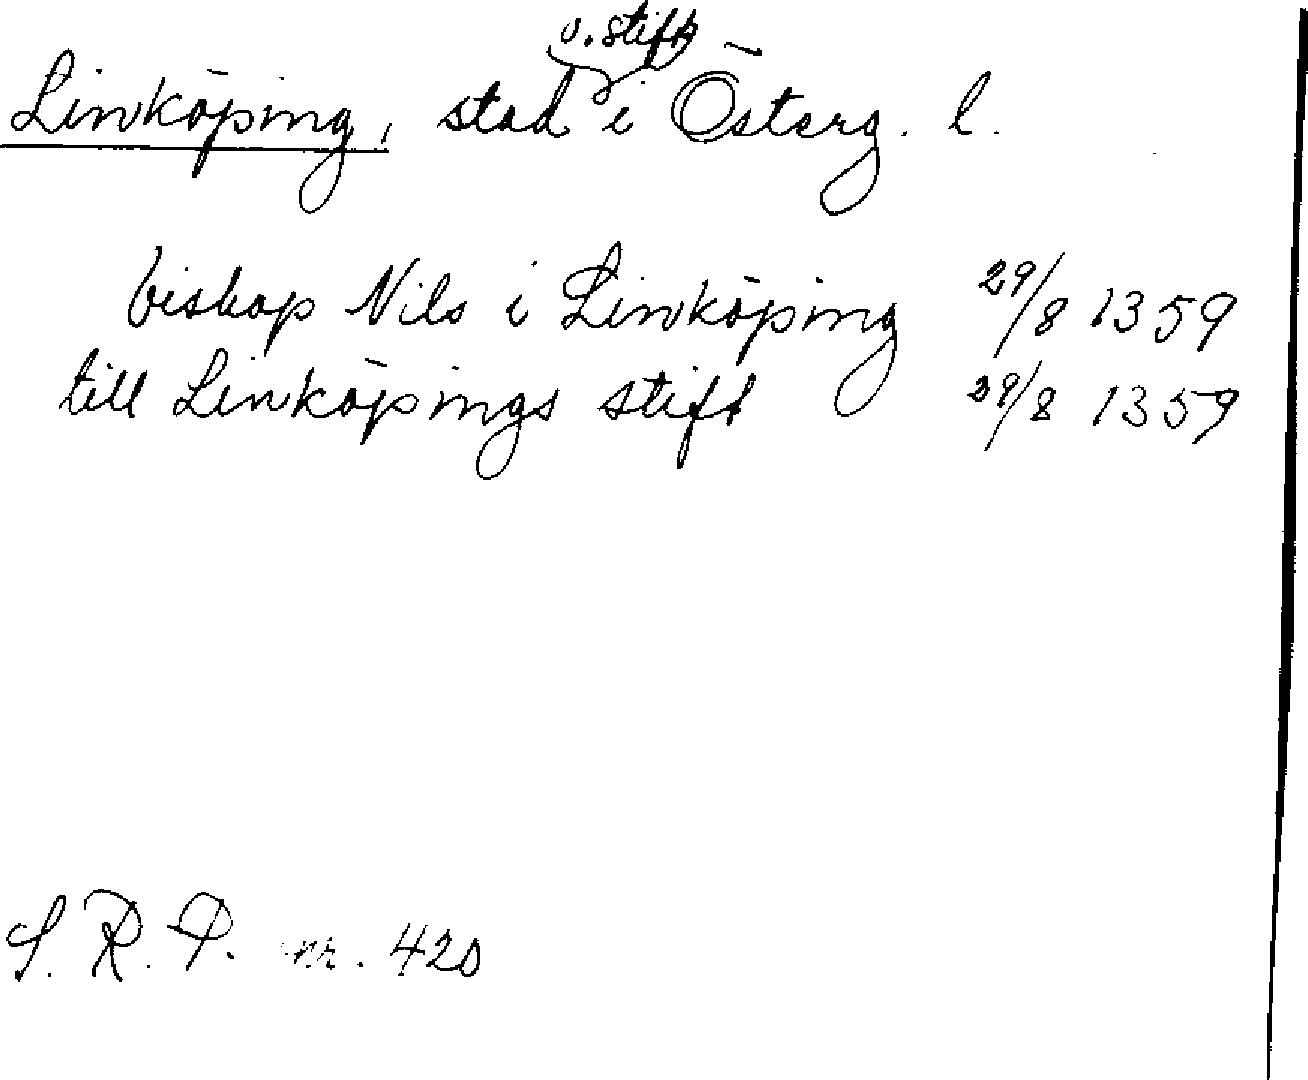 Linköping, stad o. stift i Österg. l.
biskop Nils i Linköping 29/8 1359
till Linköpings stift 29/8 1359
S. R. P. nr. 420